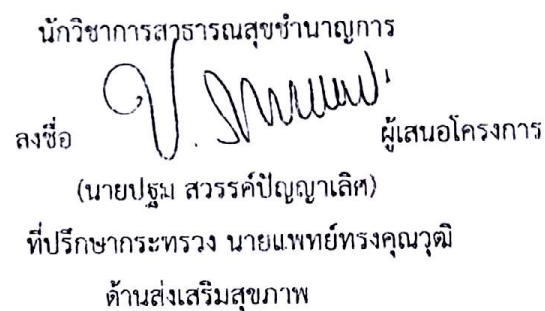 นักวิชาการสาธารณสุขชำนาญการ
ลงชื่อ ผู้เสนอโครงการ
(นายปฐม สวรรค์ปัญญาเลิศ)
ที่ปรึกษากระทรวง นายแพทย์ทรงคุณวุฒิ
ด้านส่งเสริมสุขภาพ